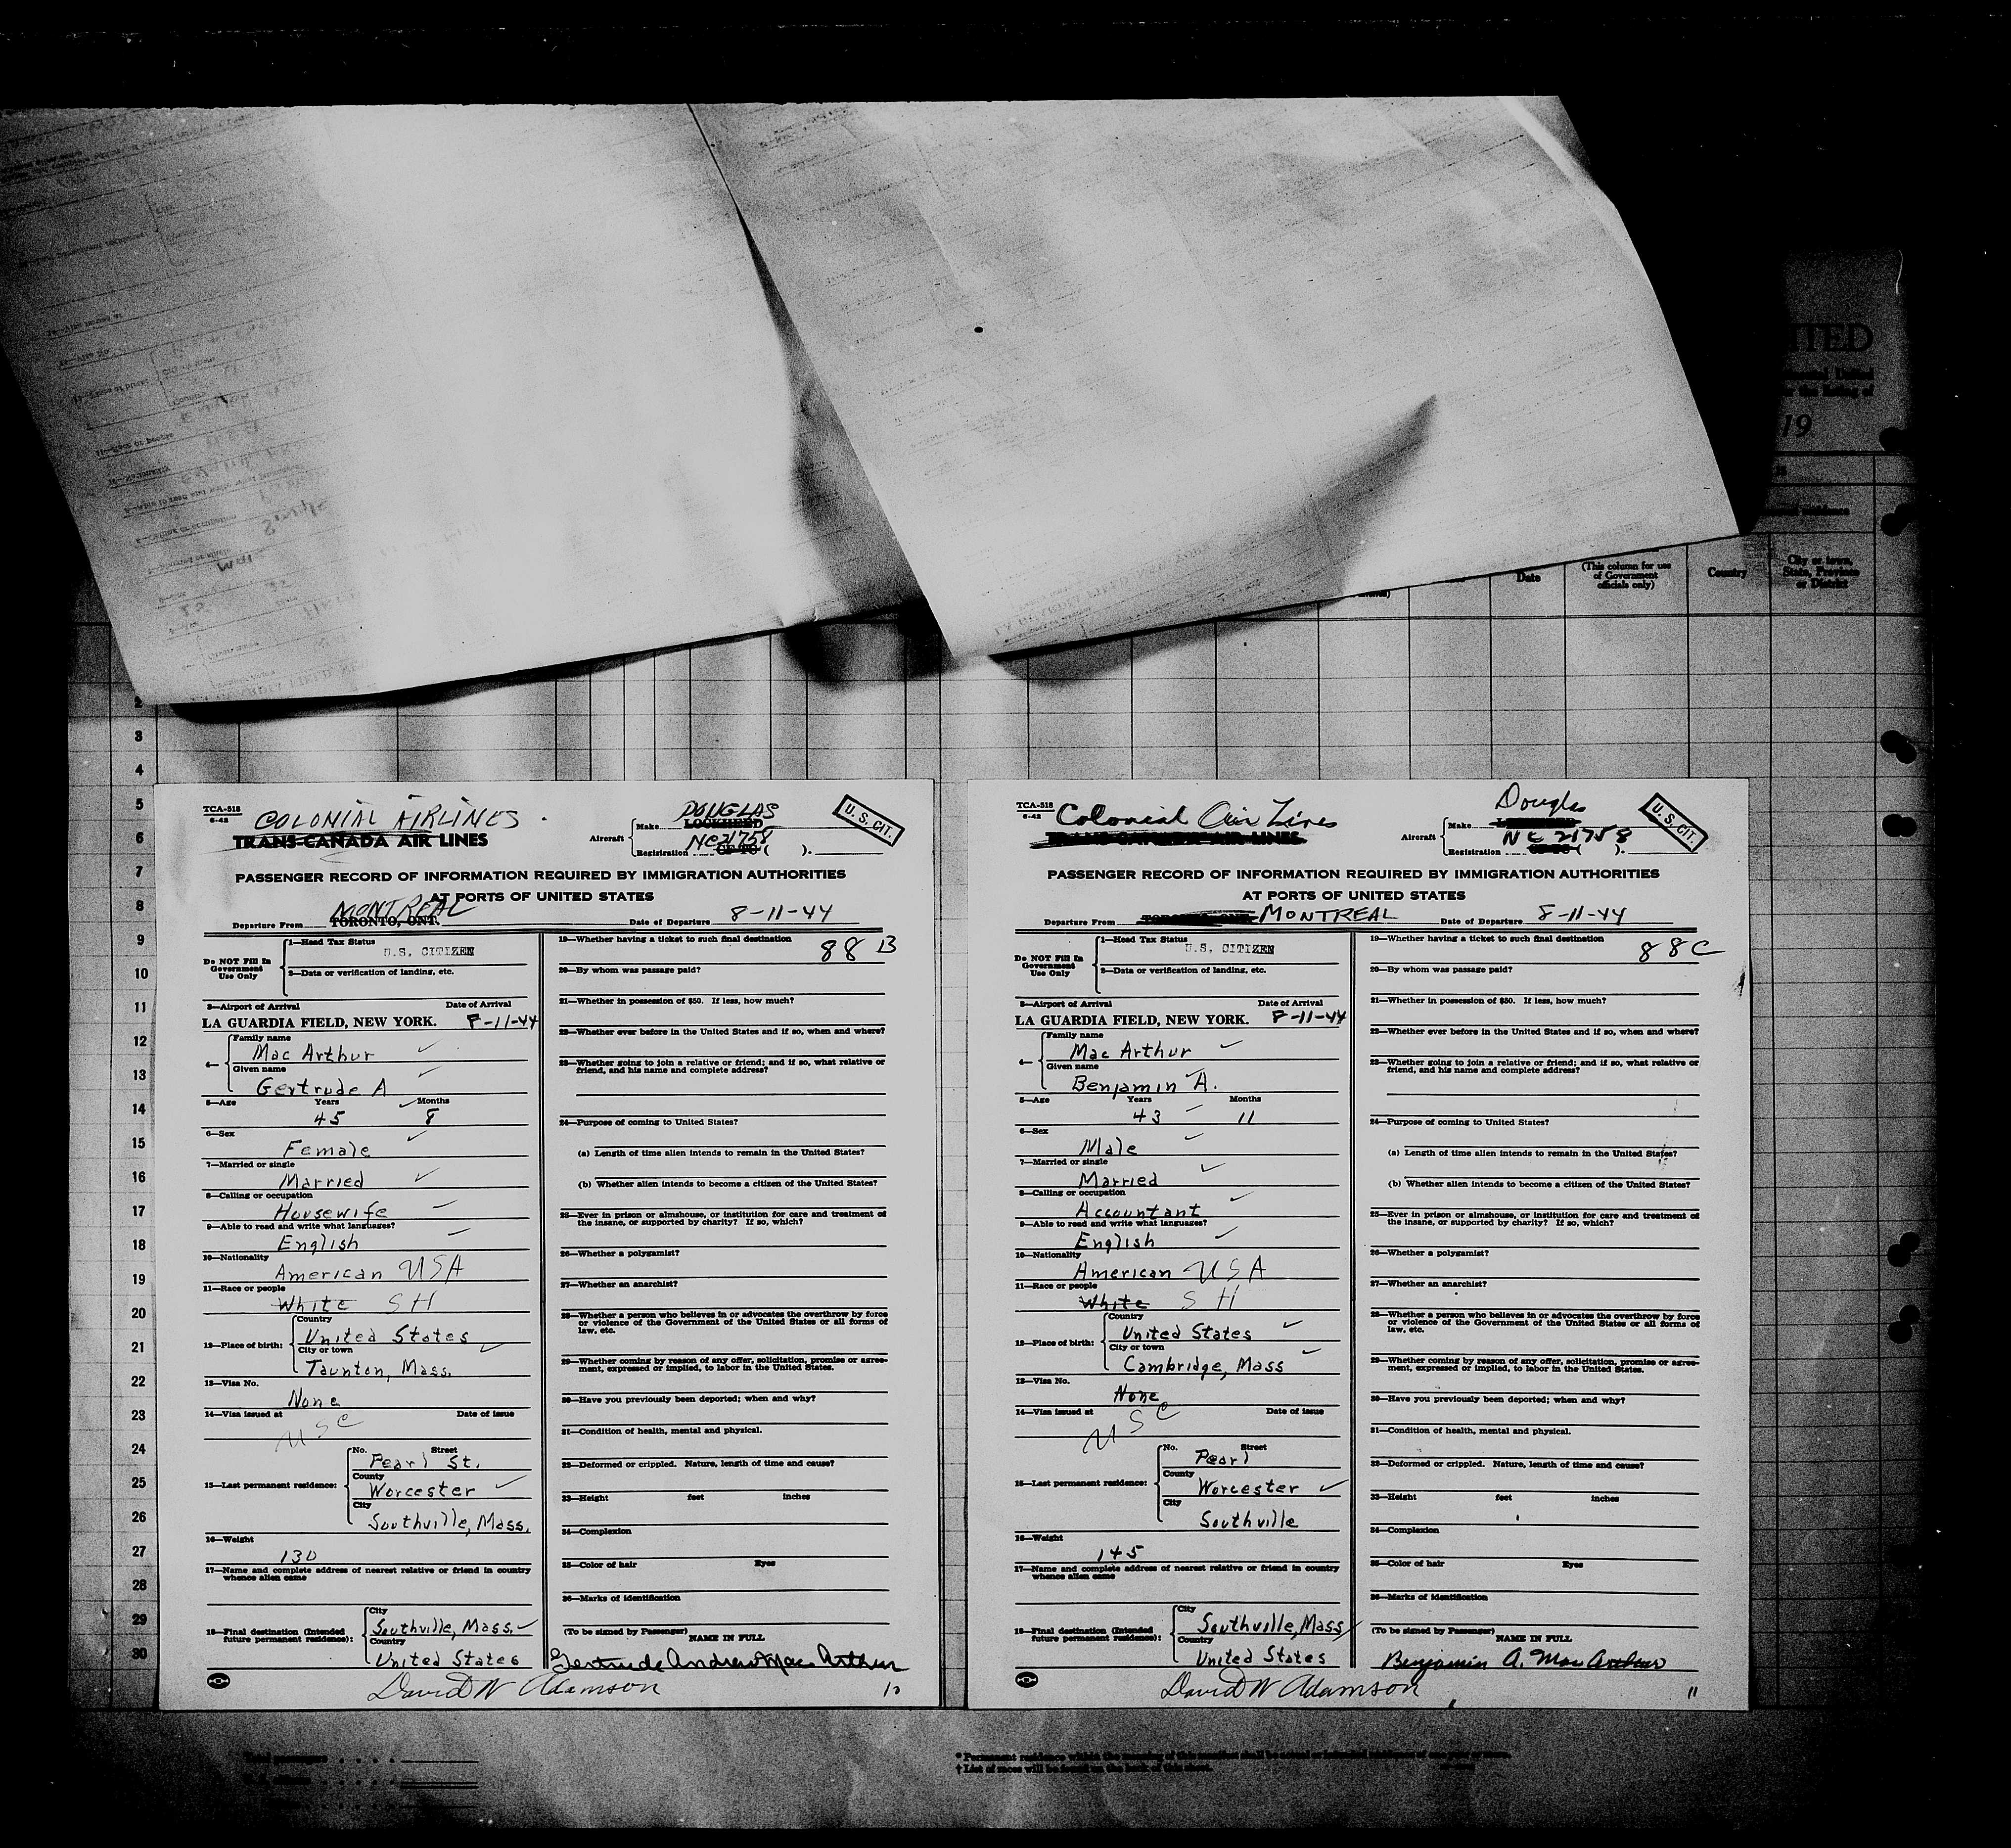 ITED
19
Date
(This column for use
of Government
officials only)
Country
City or town,
State, Province
or District
2
3
4
5
6
7
8
9
10
11
12
13
14
15
16
17
18
19
20
21
22
23
24
25
26
27
28
29
30
TCA-518
6-42
COLONIAL AIRLINES
TRANS-CANADA AIR LINES
Aircraft
DOUGLAS
Make LOCKHEED
NC21758
Registration CF-TC ( ).
U.S. CIT.
PASSENGER RECORD OF INFORMATION REQUIRED BY IMMIGRATION AUTHORITIES
AT PORTS OF UNITED STATES
MONTREAL
Departure From TORONTO, ONT. Date of Departure 8-11-44
Do NOT Fill In
Government
Use Only
1—Head Tax Status
U.S. CITIZEN
2—Data or verification of landing, etc.
3—Airport of Arrival Date of Arrival
LA GUARDIA FIELD, NEW YORK. 8-11-44
4—
Family name
Mac Arthur
Given name
Gertrude A
5—Age Years Months
45 8
6—Sex
Female
7—Married or single
Married
8—Calling or occupation
Housewife
9—Able to read and write what languages?
English
10—Nationality
American USA
11—Race or people
White SH
12—Place of birth:
Country
United States
City or town
Taunton, Mass.
13—Visa No.
None
14—Visa issued at Date of issue
USC
15—Last permanent residence:
No. Street
Pearl St.
County
Worcester
City
Southville, Mass.
16—Weight
130
17—Name and complete address of nearest relative or friend in country
whence alien came
18—Final destination (Intended
future permanent residence):
City
Southville, Mass.
Country
United States
19—Whether having a ticket to such final destination
88 B
20—By whom was passage paid?
21—Whether in possession of $50. If less, how much?
22—Whether ever before in the United States and if so, when and where?
23—Whether going to join a relative or friend; and if so, what relative or
friend, and his name and complete address?
24—Purpose of coming to United States?
(a) Length of time alien intends to remain in the United States?
(b) Whether alien intends to become a citizen of the United States?
25—Ever in prison or almshouse, or institution for care and treatment of
the insane, or supported by charity? If so, which?
26—Whether a polygamist?
27—Whether an anarchist?
28—Whether a person who believes in or advocates the overthrow by force
or violence of the Government of the United States or all forms of
law, etc.
29—Whether coming by reason of any offer, solicitation, promise or agree-
ment, expressed or implied, to labor in the United States.
30—Have you previously been deported; when and why?
31—Condition of health, mental and physical.
32—Deformed or crippled. Nature, length of time and cause?
33—Height feet inches
34—Complexion
35—Color of hair Eyes
36—Marks of identification
(To be signed by Passenger)
NAME IN FULL
Gertrude Andrew Mac Arthur
David W Adamson
10
TCA-518
6-42
Colonial Air Lines
TRANS-CANADA AIR LINES
Aircraft
Douglas
Make
NC 21758
Registration CF-TC ( ).
U.S. CIT.
PASSENGER RECORD OF INFORMATION REQUIRED BY IMMIGRATION AUTHORITIES
AT PORTS OF UNITED STATES
Departure From MONTREAL Date of Departure 8-11-44
Do NOT Fill In
Government
Use Only
1—Head Tax Status
U.S. CITIZEN
2—Data or verification of landing, etc.
3—Airport of Arrival Date of Arrival
LA GUARDIA FIELD, NEW YORK. 8-11-44
4—
Family name
Mac Arthur
Given name
Benjamin A.
5—Age Years Months
43 11
6—Sex
Male
7—Married or single
Married
8—Calling or occupation
Accountant
9—Able to read and write what languages?
English
10—Nationality
American USA
11—Race or people
White SH
12—Place of birth:
Country
United States
City or town
Cambridge, Mass
13—Visa No.
None
14—Visa issued at Date of issue
USC
15—Last permanent residence:
No. Street
Pearl
County
Worcester
City
Southville
16—Weight
145
17—Name and complete address of nearest relative or friend in country
whence alien came
18—Final destination (Intended
future permanent residence):
City
Southville, Mass
Country
United States
19—Whether having a ticket to such final destination
88C
20—By whom was passage paid?
21—Whether in possession of $50. If less, how much?
22—Whether ever before in the United States and if so, when and where?
23—Whether going to join a relative or friend; and if so, what relative or
friend, and his name and complete address?
24—Purpose of coming to United States?
(a) Length of time alien intends to remain in the United States?
(b) Whether alien intends to become a citizen of the United States?
25—Ever in prison or almshouse, or institution for care and treatment of
the insane, or supported by charity? If so, which?
26—Whether a polygamist?
27—Whether an anarchist?
28—Whether a person who believes in or advocates the overthrow by force
or violence of the Government of the United States or all forms of
law, etc.
29—Whether coming by reason of any offer, solicitation, promise or agree-
ment, expressed or implied, to labor in the United States.
30—Have you previously been deported; when and why?
31—Condition of health, mental and physical.
32—Deformed or crippled. Nature, length of time and cause?
33—Height feet inches
34—Complexion
35—Color of hair Eyes
36—Marks of identification
(To be signed by Passenger)
NAME IN FULL
Benjamin A. Mac Arthur
David W Adamson
11
* Permanent residence within the meaning of this manifest shall be actual or intended residence of one year or more.
† List of races will be found on the back of this sheet.